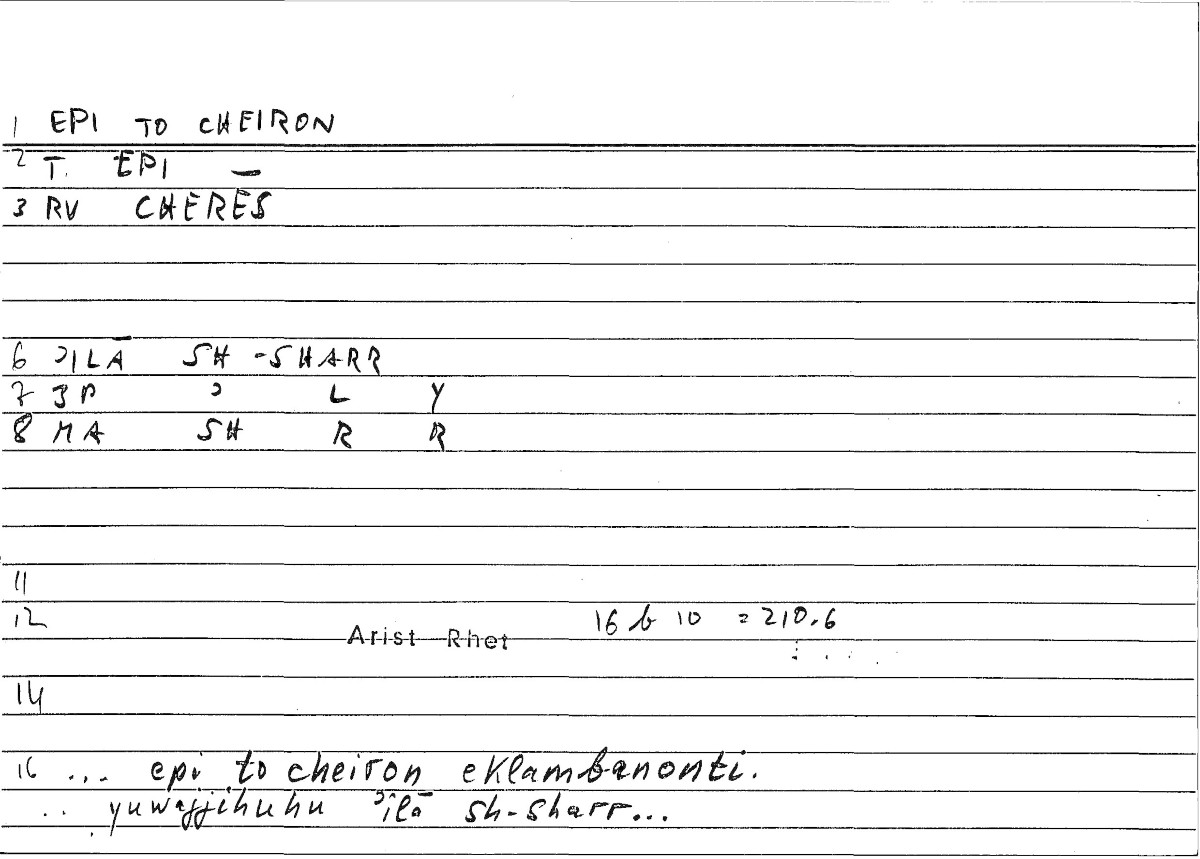 1 EPI TO CHEIRON
2 T. EPI —
3 RV CHERĒS
6 ʾILĀ SH-SHARR
7 3P ʾ L Y
8 MA SH R R
11
12 Arist Rhet 16 b 10 = 210.6
14
16 ... epi to cheiron eklambanonti.
.. yuwajjihuhu ʾilā sh-sharr...